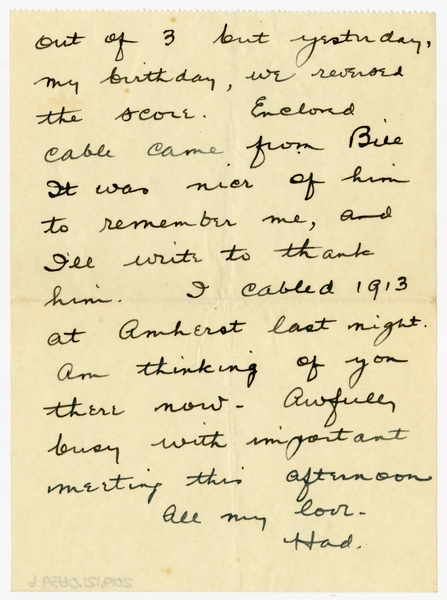 out of 3 but yesterday,
my birthday, we reversed
the score. Enclosed
cable came from Bill
It was nice of him
to remember me, and
I'll write to thank
him. I cabled 1913
at Amherst last night.
Am thinking of you
there now - Awfully
busy with important
meeting this afternoon
All my love -
Had.